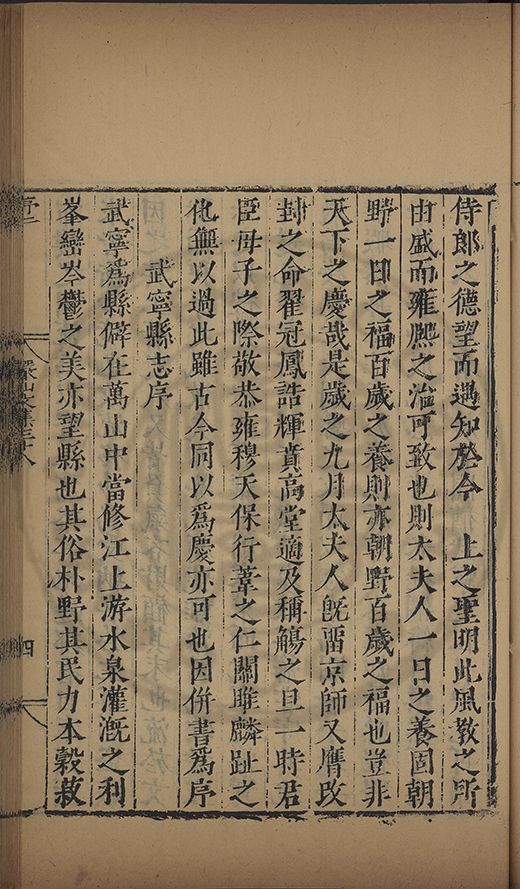 侍郎之德望而遇知於今　上之聖明此風教之所
由盛而雍熈之治可致也則太夫人一日之養固朝
野一日之福百歲之養則亦朝野百歲之福也豈非
天下之慶哉是歲之九月太夫人旣畱京師又膺改
封之命翟冠鳳誥輝賁高堂適及稱觴之旦一時君
臣母子之際敬恭雍穆天保行葦之仁關雎麟趾之
化無以過此雖古今同以爲慶亦可也因併書爲序
武寧縣志序
武寧爲縣僻在萬山中當修江上游水泉灌漑之利
峯巒岑鬱之美亦望縣也其俗朴野其民力本穀菽
四